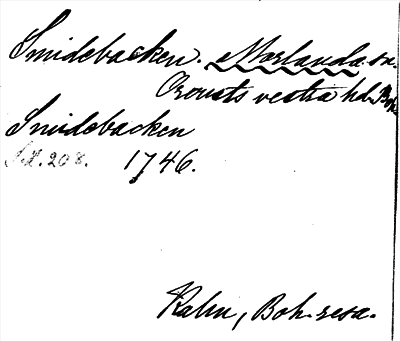 Smidebacken. Morlanda sn.
Orousts vestra hd. Boh.
Smidebacken
Sid. 208. 1746.
Kalm, Boh. resa.